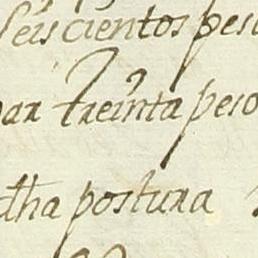 Seis cientos peso
par treinta peso
dha postura